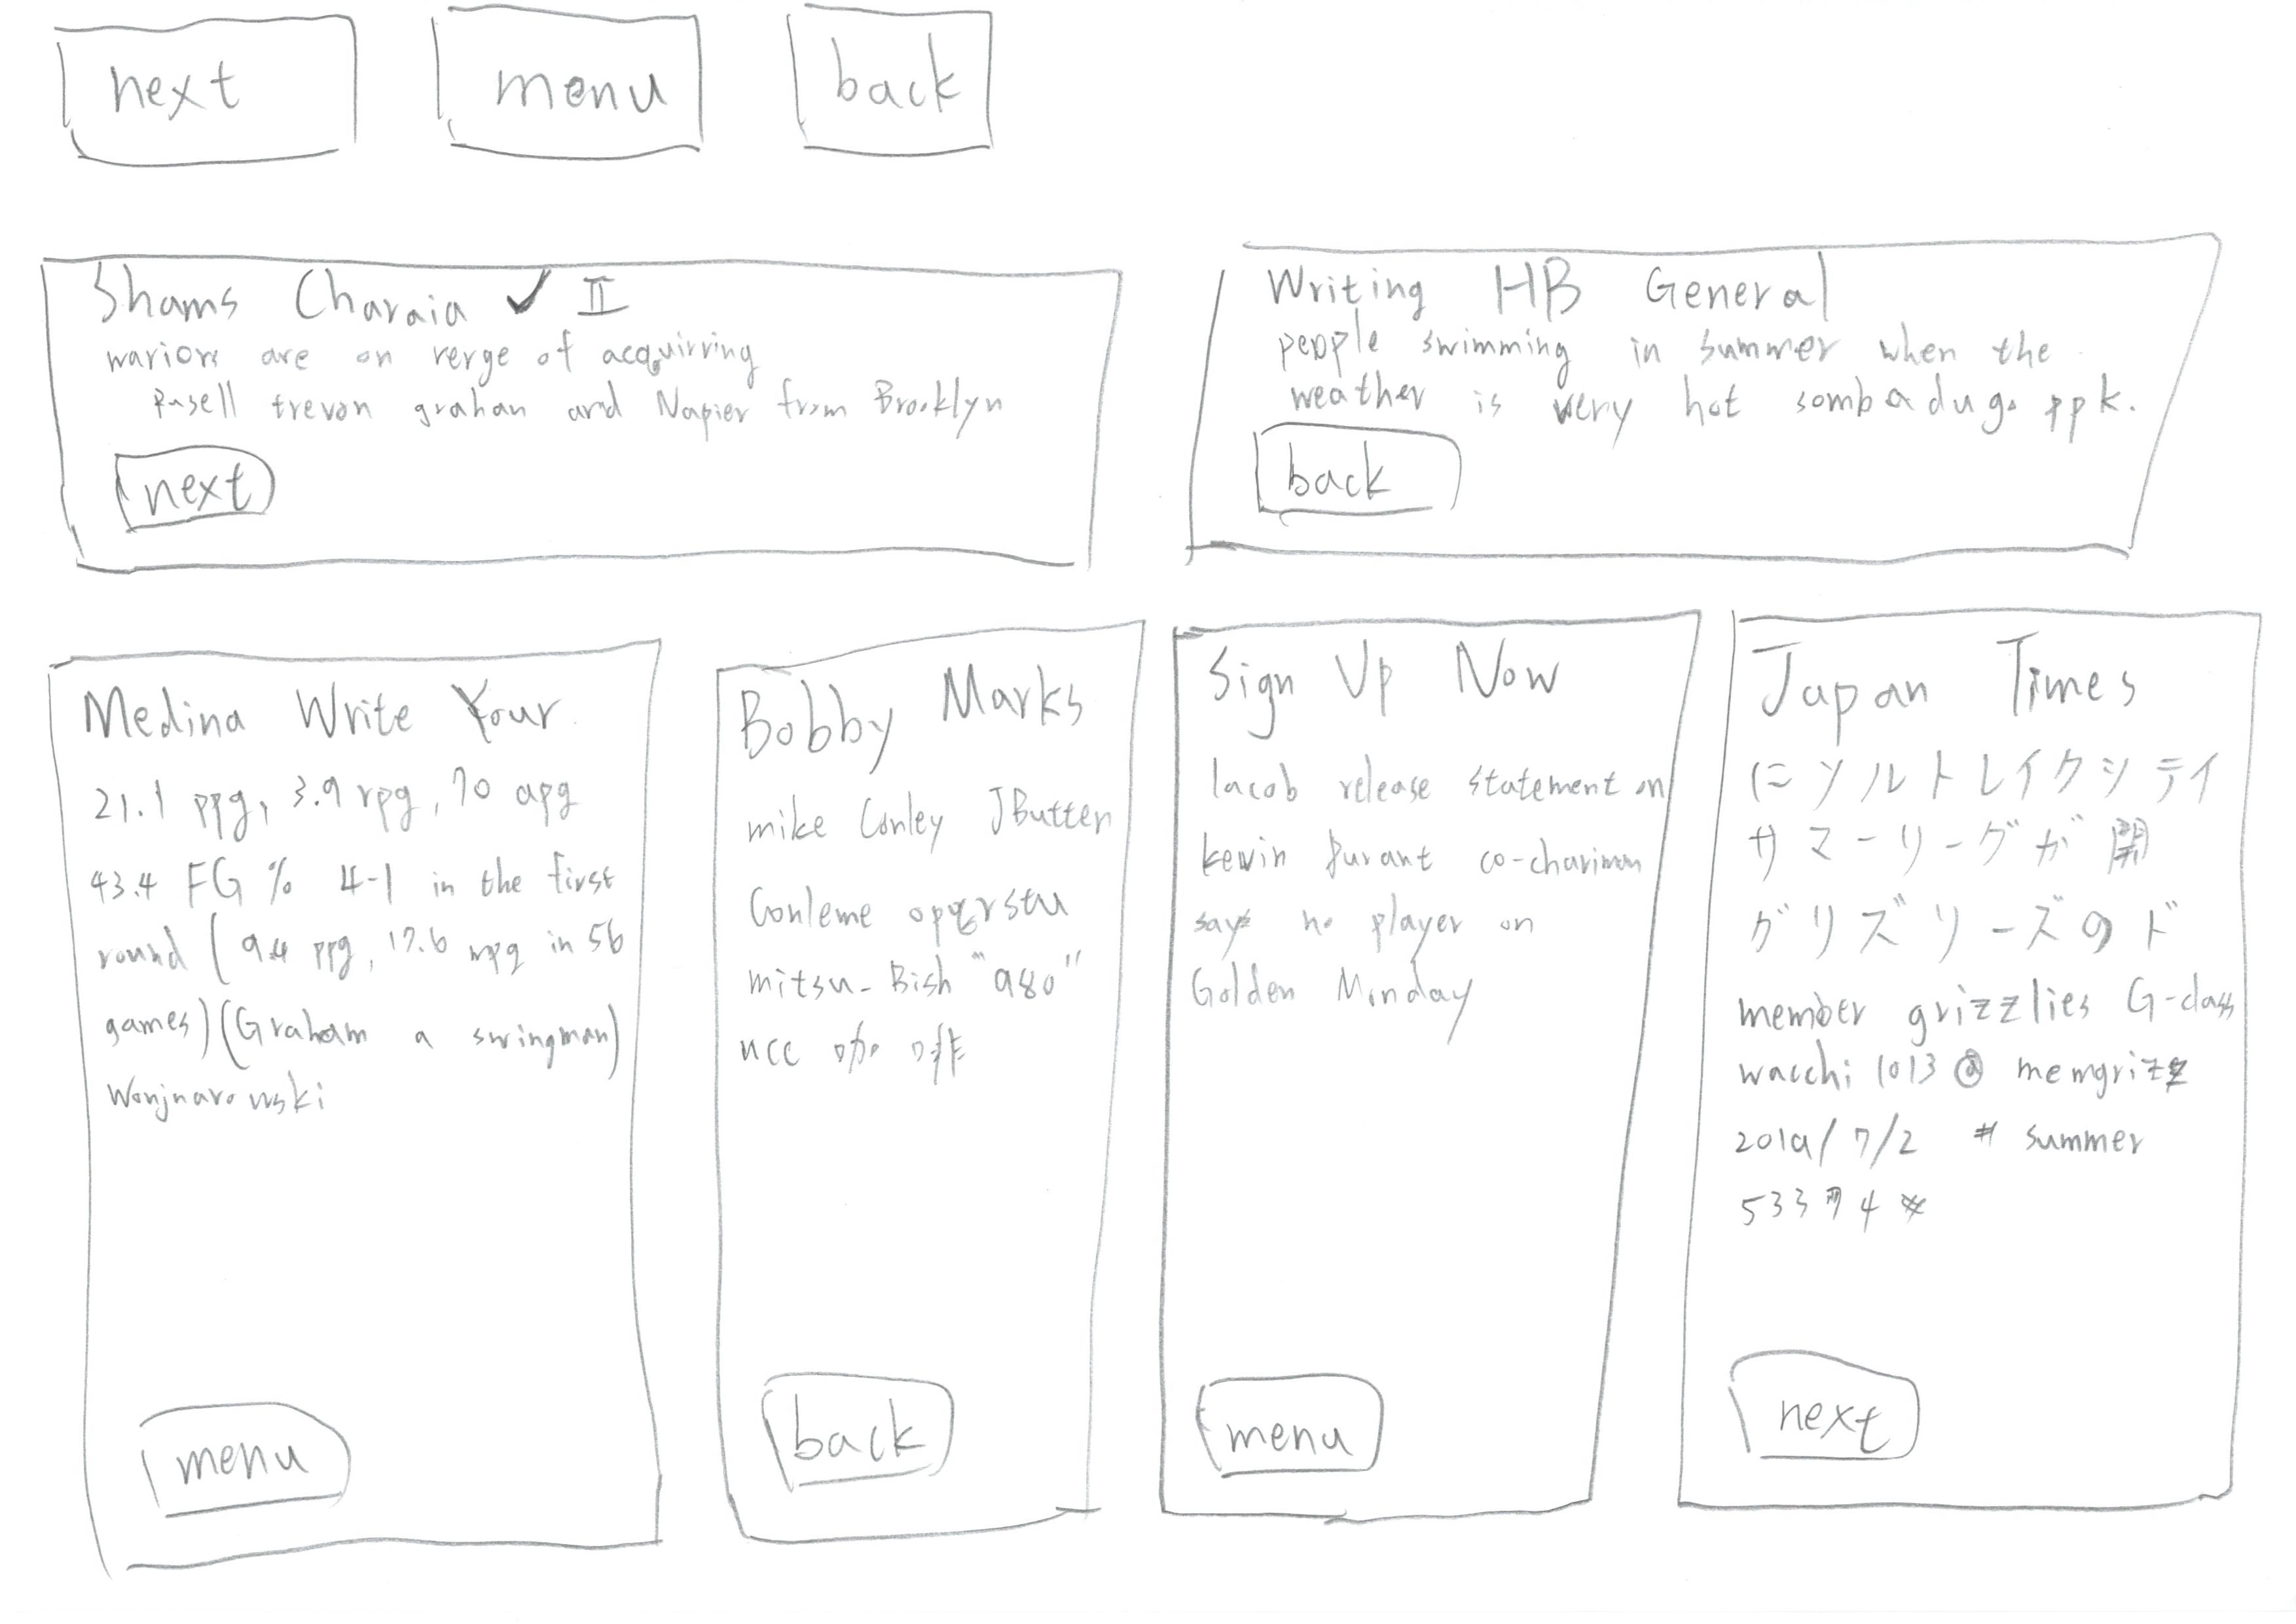 next
menu
back
Shams Charaia ✓ II
wariors are on verge of acquirring
Rusell trevon grahan and Napier from Brooklyn
next
Writing HB General
people swimming in summer when the
weather is very hot sombadugo ppk.
back
Medina Write Your
21.1 ppg, 3.9 rpg, 70 apg
43.4 FG % 4-1 in the first
round ( 9.4 ppg, 17.6 mpg in 56
games) (Graham a swingman)
Wonjnarowski
menu
Bobby Marks
mike Conley JButten
Conleme opqrstu
mitsu-Bish "a80"
ucc 咖啡
back
Sign Up Now
lacob release statement on
kevin Durant co-chariman
says no player on
Golden Monday
menu
Japan Times
にソルトレイクシティ
サマーリーグが開
グリズリーズのド
member grizzlies G-class
wacchi 1013 @ memgrizz
2019/7/2 # summer
53374 *
next